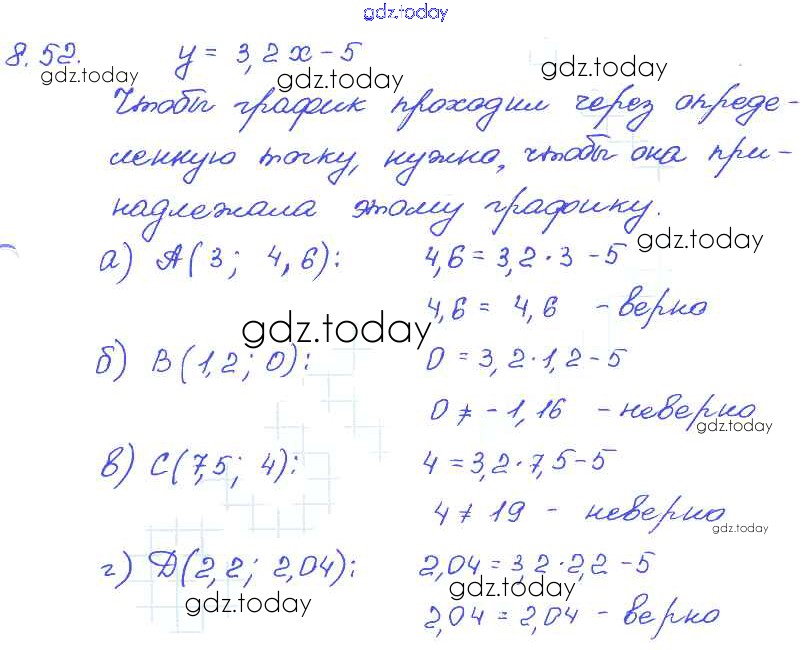 gdz.today
8.52. y = 3,2x - 5
gdz.today gdz.today
Чтобы график проходил через опреде-
gdz.today
ленную точку, нужно, чтобы она при-
gdz.today gdz.today
надлежала этому графику.
gdz.today
а) A(3; 4,6): 4,6 = 3,2 · 3 - 5
4,6 = 4,6 - верно
gdz.today
б) B(1,2; 0): 0 = 3,2 · 1,2 - 5
0 ≠ -1,16 - неверно
gdz.today
в) C(7,5; 4): 4 = 3,2 · 7,5 - 5
4 ≠ 19 - неверно
gdz.today
г) Д(2,2; 2,04): 2,04 = 3,2 · 2,2 - 5
gdz.today gdz.today
2,04 = 2,04 - верно